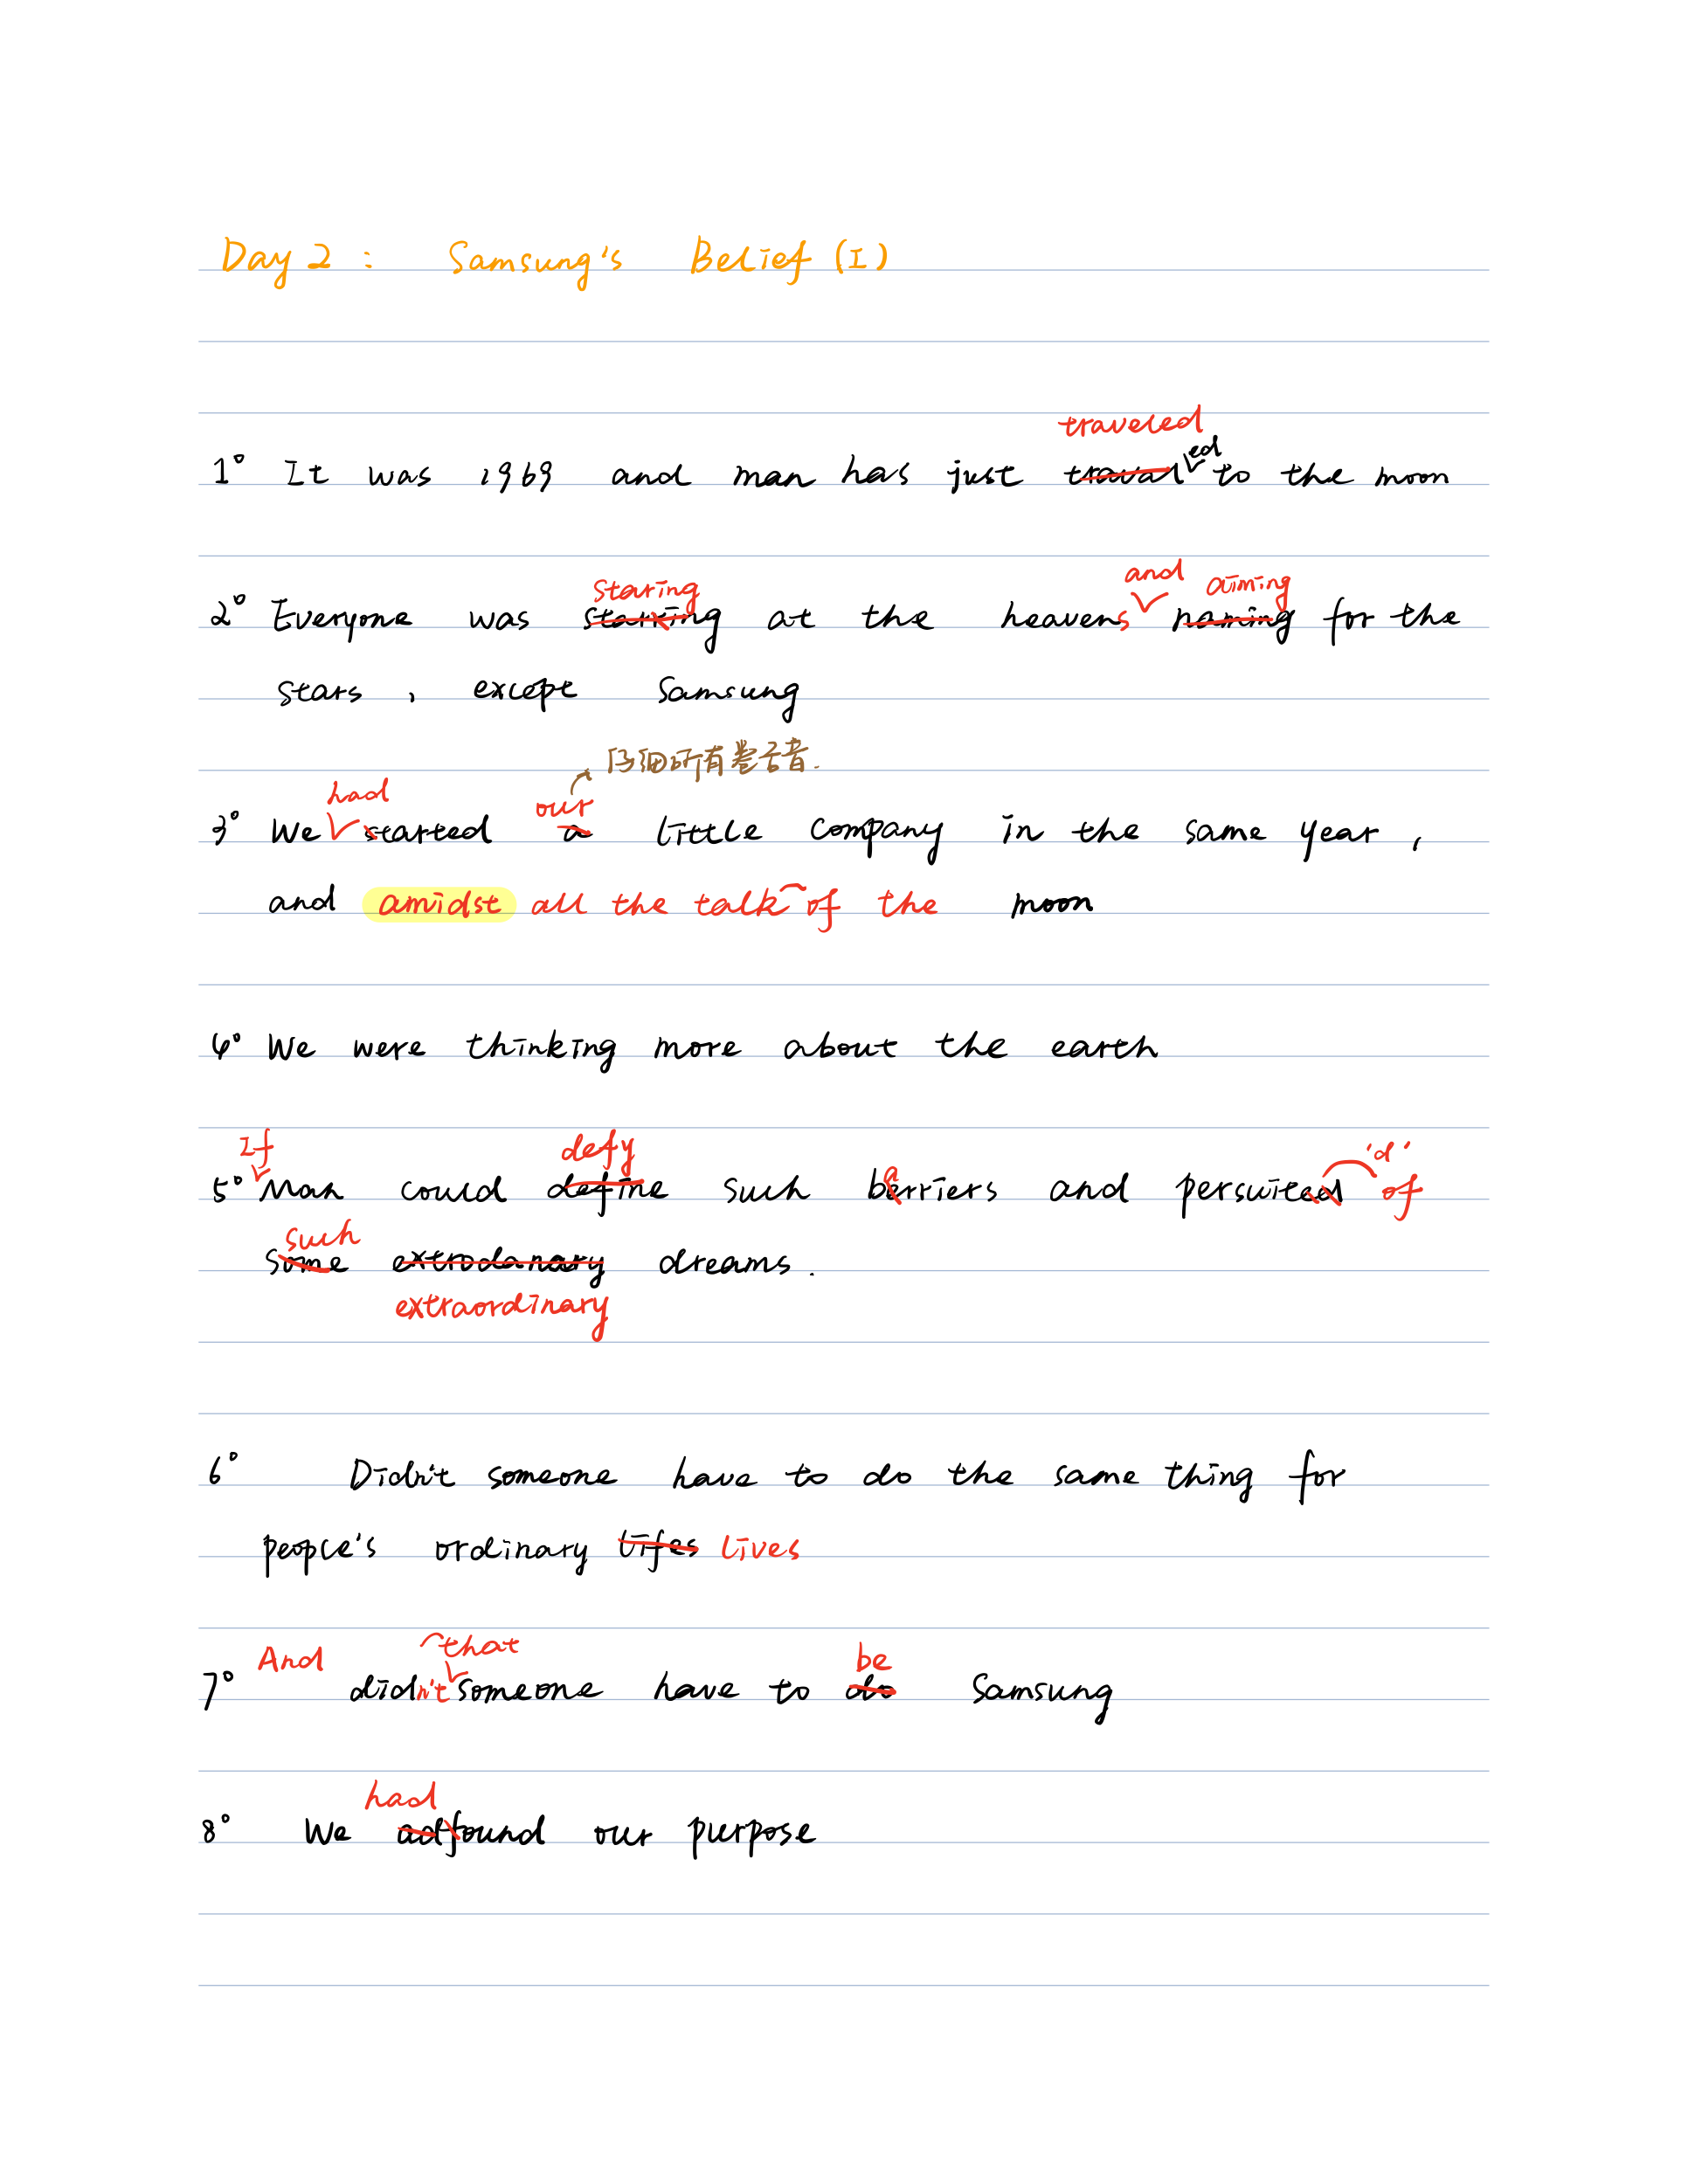 Day 2 : Samsung's Belief (I)
traveled
1° It was 1969 and man has just traval ed to the moon
staring and aiming
2° Everyone was starking at the heavens naming for the
stars , except Samsung
仔细听有卷舌音.
had our
3° We started a little company in the same year ,
and amidst all the talk of the moon
4° We were thinking more about the earth
If defy 'd'
5° Man could define such barriers and persuited of
such
some extrodanary dreams.
extraordinary
6° Didn't someone have to do the same thing for
people's ordinary lifes lives
And that be
7° didn't someone have to do Samsung
had
8° We ad found our purpose